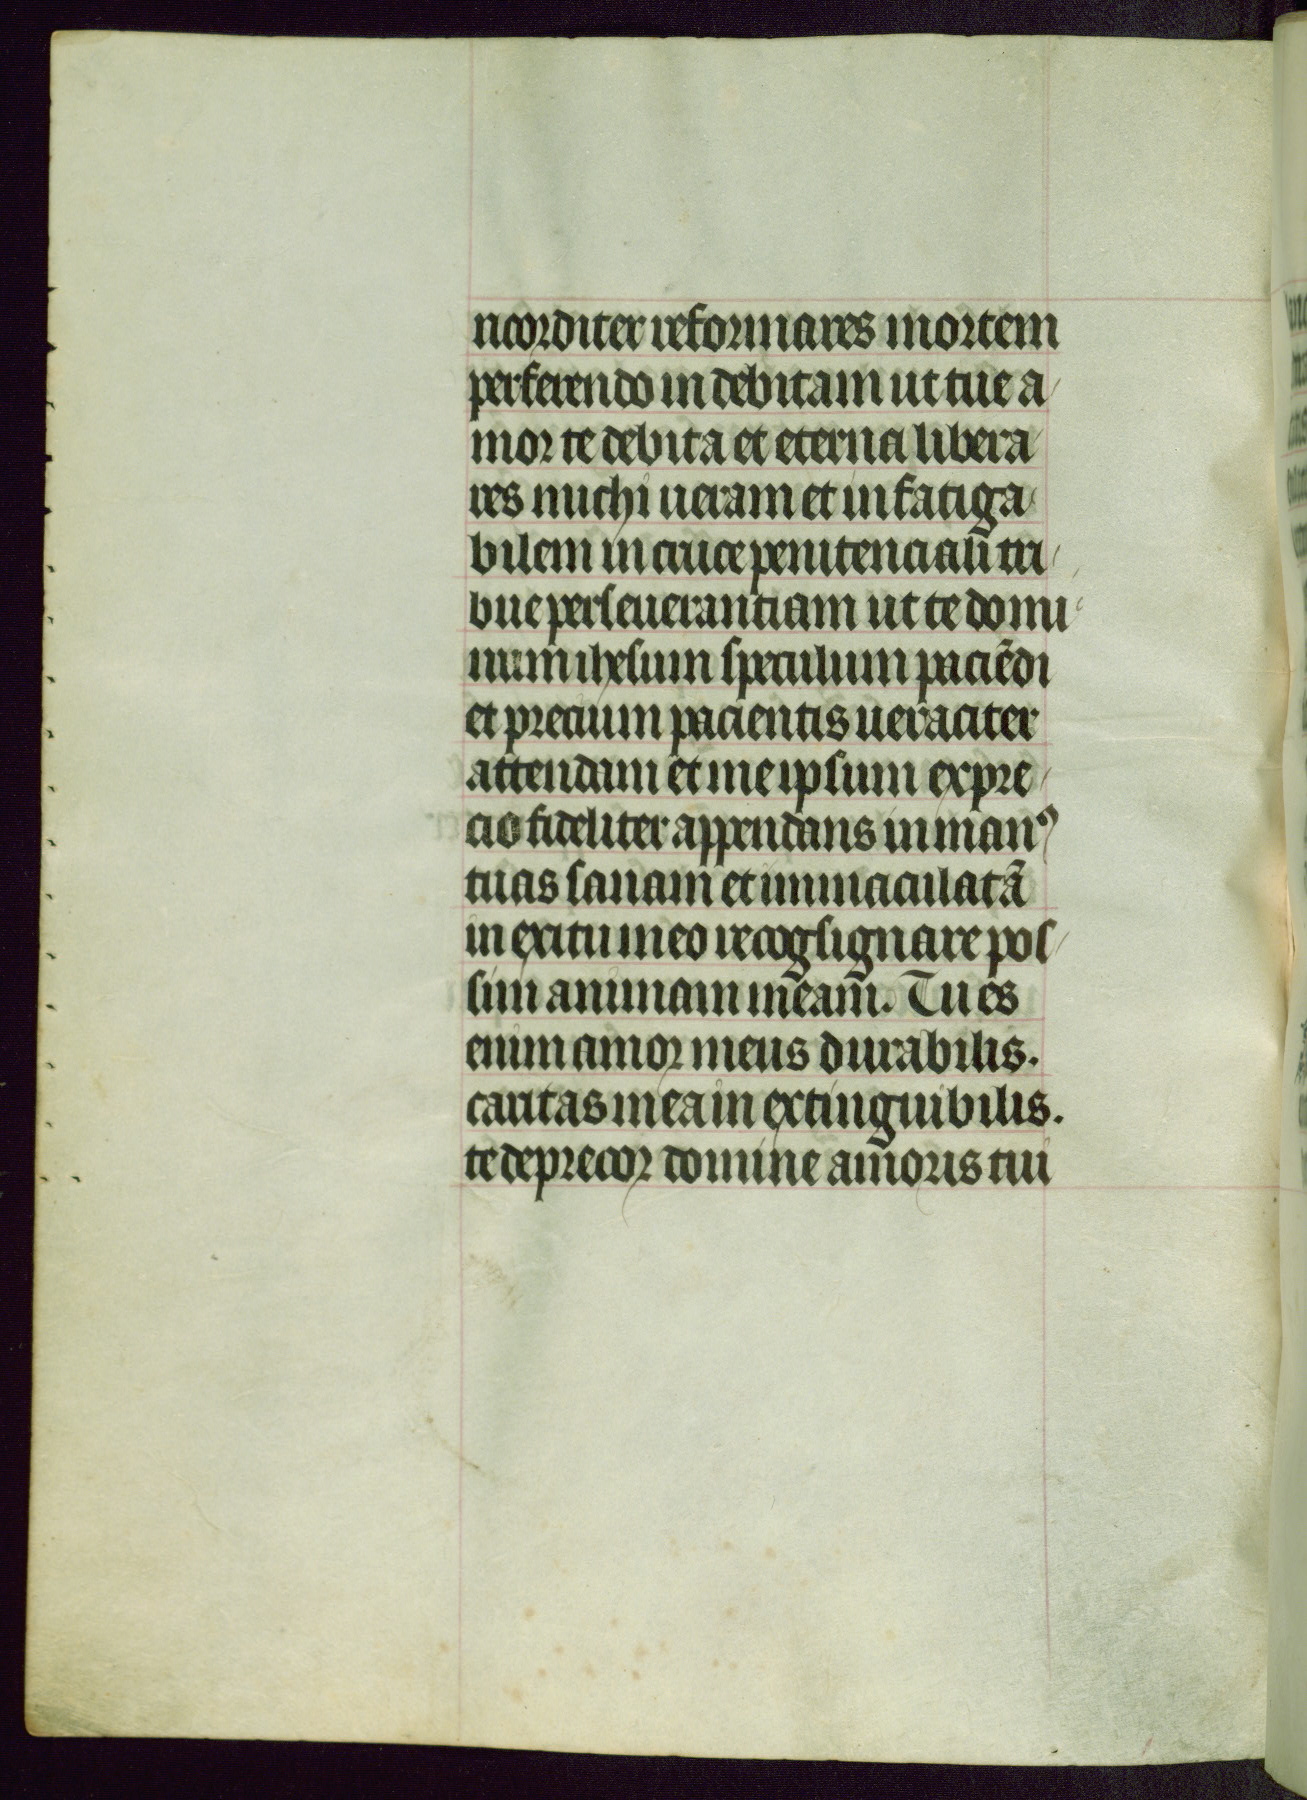 ricorditer reformares mortem
perferendo in debitam ut tue a
mor te debita et eterna libera
res michi ueram et infatiga
bilem in cruce penitenciali tri
bue perseuerantiam ut te domi
num ihesum speculum paciēdi
et precium pacientis ueraciter
attendam et me ipsum ex pre
cio fideliter appendans in manꝰ
tuas sanam et immaculatā
in exitu meo recogsignare pos
sim animam meam. Tu es
enim amor meus durabilis.
caritas mea in extinguibilis.
te deprecor domine amoris tui